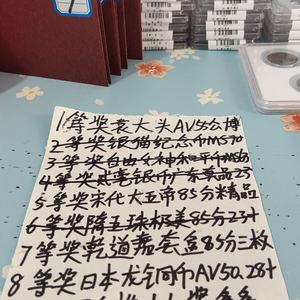 1等奖袁大头AV55公博
2等奖银猫纪念币MS70
3等奖自由女神和平币MS
4等奖贰毫银币广东
5等奖宋代大五帝85分精品
6等奖隋五珠极美85分23+
7等奖乾道元宝套豆85分三枚
8等奖日本龙铜币AV50,28+